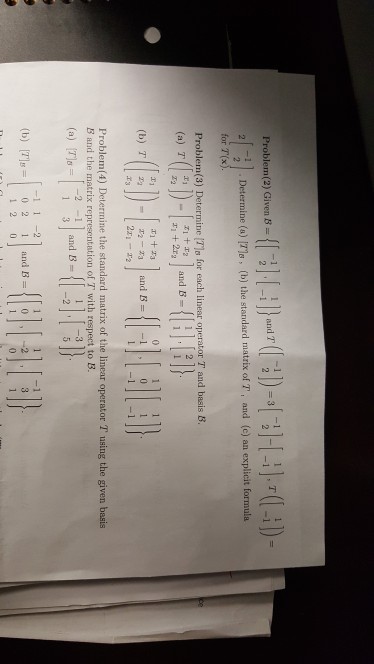 Problem(2) Given B = {[-1 2], [1 -1]} and T([-1 2]) = 3[-1 2] - [1 -1], T([1 -1]) =
2[-1 2]. Determine (a) [T]B, (b) the standard matrix of T, and (c) an explicit formula
for T(x).
Problem(3) Determine [T]B for each linear operator T and basis B.
(a) T([x1 x2]) = [x1 + x2 x1 + 2x2] and B = {[1 1], [2 1]}.
(b) T([x1 x2 x3]) = [x1 + x3 x2 - x3 2x1 - x2] and B = {[0 -1 1], [1 0 -1], [1 1 -1]}.
Problem(4) Determine the standard matrix of the linear operator T using the given basis
B and the matrix representation of T with respect to B.
(a) [T]B = [-2 -1 1 3] and B = {[1 -2], [-3 5]}.
(b) [T]B = [-1 1 -2 0 2 1 1 2 0] and B =